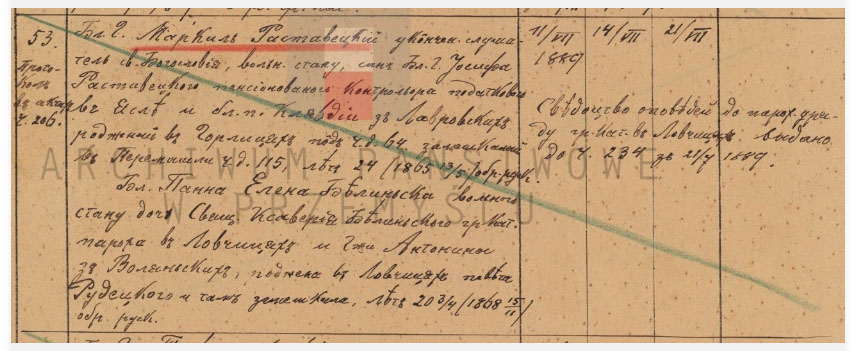 53.
Бл. Г. Маркиль Раставецкій укончен. слуша-
тель св. Богословія, вольн. стану, сынъ Бл. Г. Іосифа
Раставецкого пенсіонованого контролюра податкового
въ Яслѣ и бл. п. Клявдіи зъ Лавровскихъ
родженый въ Горлицяхъ подъ ч. д. 64, замешкалый
въ Перемышли ч. д. 115, лѣтъ 24 (1865 3/5) обр. руск.
Бл. Панна Елена Бѣлиньска вольного
стану дочь Свящ. Ксаверія Бѣлиньского гр. кат.
пароха въ Ловчицяхъ и Антонины
зъ Воляньскихъ, роджена въ Ловчицяхъ повѣта
Рудецкого и тамъ замешкала, лѣтъ 20 3/4 (1868 15/11)
обр. руск.
въ актахъ
ч. 206.
11/VII
1889
14/VII
21/VII
Свѣдоцтво оповѣдей до парох. уря-
ду гр. кат. въ Ловчицяхъ выдано
до ч. 234 зъ 21/7 1889.
ARCHIWUM PAŃSTWOWE
W PRZEMYŚLU